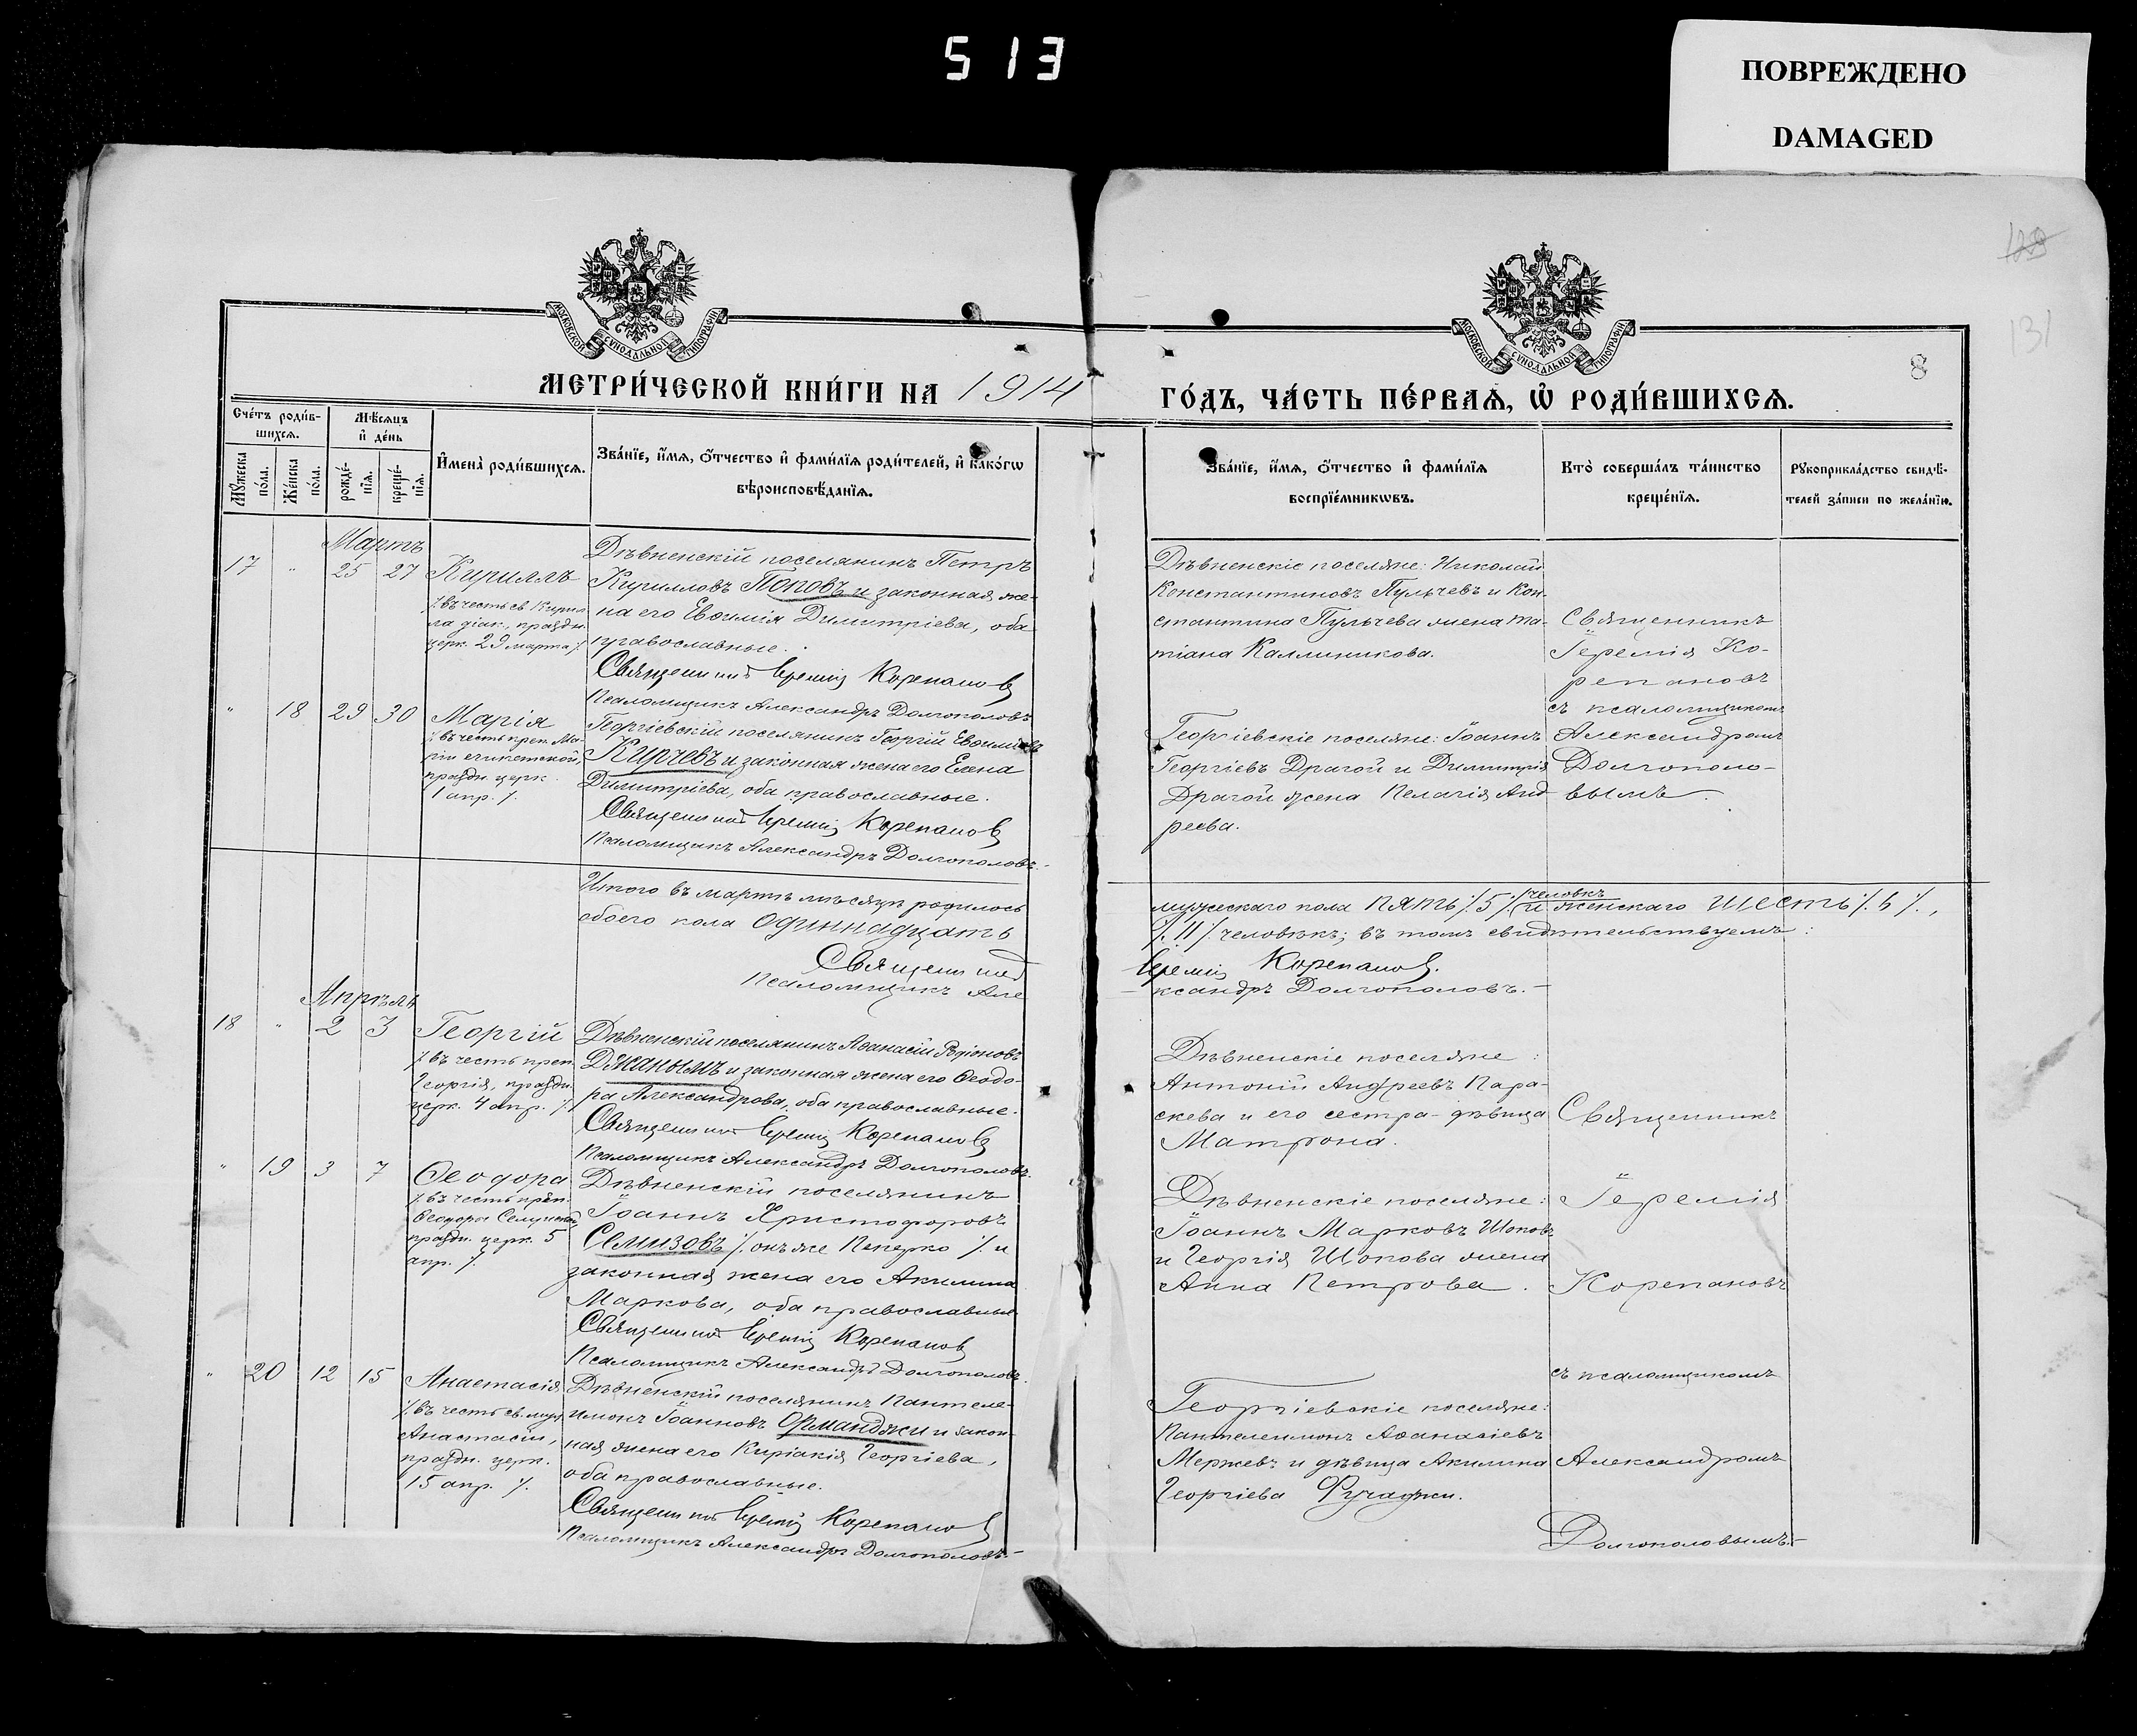 513
ПОВРЕЖДЕНО
DAMAGED
128
131
8
МОСКОВСКОЙ СѴНОДАЛЬНОЙ ТИПОГРАФІИ
МОСКОВСКОЙ СѴНОДАЛЬНОЙ ТИПОГРАФІИ
МЕТРИ́ЧЕСКОЙ КНИ́ГИ НА 1914
ГО́ДЪ, ЧА́СТЬ ПЕ́РВАѦ, Ѡ҆ РОДИ́ВШИХСѦ.
Сче́тъ роди́в-
шихсѧ.
Мѣ́сѧцъ
и҆ де́нь
Мꙋ́жеска
по́ла.
Же́нска
по́ла.
рожде́-
нїѧ.
креще́-
нїѧ.
И҆мена̀ роди́вшихсѧ.
Зва́нїе, и҆́мѧ, ѻ҆́тчество и҆ фами́лїѧ роди́телей, и҆ како́гѡ
вѣроисповѣ́данїѧ.
Зва́нїе, и҆́мѧ, ѻ҆́тчество и҆ фами́лїѧ
воспрїе́мникѡвъ.
Кто̀ соверша́лъ та́инство
креще́нїѧ.
Рꙋкоприкла́дство свидѣ́-
телей за́писи по жела́нїю.
Мартъ
17 " 25 27 Кириллъ
/. въ честь св. Кирил
ла діак., праздн.
церк. 29 марта /.
Дѣвненскій поселянинъ Петръ
Кирилловъ Поповъ и законная же-
на его Евѳимія Димитріева, оба
православные.
Священникъ Іеремія Корепановъ
Псаломщикъ Александръ Долгополовъ
Дѣвненскіе поселяне: Николай
Константиновъ Пульчевъ и Кон-
стантина Пульчева жена Та-
тіана Каллиникова.
Священникъ
Іеремія Ко-
репановъ
съ псаломщикомъ
Александромъ
Долгополо-
вымъ.
" 18 29 30 Марія
/. въ честь преп. Ма-
ріи египетской,
праздн. церк.
1 апр. /.
Георгіевскій поселянинъ Георгій Евѳиміевъ
Кирчевъ и законная жена его Елена
Димитріева, оба православные.
Священникъ Іеремія Корепановъ
Псаломщикъ Александръ Долгополовъ.
Георгіевскіе поселяне: Іоаннъ
Георгіевъ Драгой и Димитрія
Драгой жена Пелагія Анд
реева.
Итого въ мартѣ мѣсяцѣ родилось
обоего пола Одиннадцать
Священникъ
Псаломщикъ Але
мужескаго пола Пять /. 5 /. человкъ и женскаго Шесть /. 6 /.,
/. 11 /. человѣкъ; въ томъ свидѣтельствуемъ:
Іеремія Корепановъ.
ксандръ Долгополовъ.
Апрѣль
18 " 2 3 Георгій
/. въ честь преп.
Георгія, праздн.
церк. 4 апр. /.
Дѣвненскій поселянинъ Аѳанасій Родіоновъ
Джанымъ и законная жена его Ѳеодо-
ра Александрова, оба православные.
Священникъ Іеремія Корепановъ
Псаломщикъ Александръ Долгополовъ.
Дѣвненскіе поселяне:
Антоній Андреевъ Пара-
скева и его сестра - дѣвица
Матрона.
Священникъ
" 19 3 7 Ѳеодора
/. въ честь преп.
Ѳеодоры Селунской,
праздн. церк. 5
апр. /.
Дѣвненскій поселянинъ
Іоаннъ Христофоровъ
Семизовъ /. онъ же Пекерко /. и
законная жена его Акилина
Маркова, оба православные
Священникъ Іеремія Корепановъ
Псаломщикъ Александръ Долгополовъ.
Дѣвненскіе поселяне:
Іоаннъ Марковъ Шоповъ
и Георгія Шопова жена
Анна Петрова.
Іеремія
Корепановъ
" 20 12 15 Анастасія
/. въ честь св. муч.
Анастасіи,
праздн. церк.
15 апр. /.
Дѣвненскій поселянинъ Пантеле-
имонъ Іоанновъ Орманджи и закон-
ная жена его Киріакія Георгіева,
оба православные.
Священникъ Іеремія Корепановъ
Псаломщикъ Александръ Долгополовъ.
Георгіевскіе поселяне:
Пантелеимонъ Аѳанасіевъ
Мержевъ и дѣвица Акилина
Георгіева Фучаджи.
съ псаломщикомъ
Александромъ
Долгополовымъ.